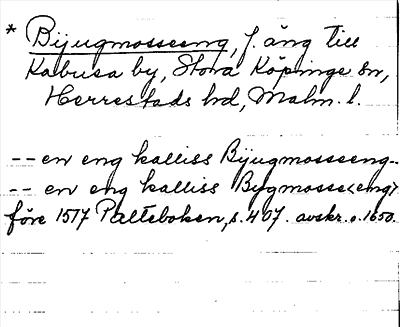 * Bijugmosseeng, f. äng till
Kabusa by, Stora Köpinge sn,
Herrestads hd, Malm. l.
-- en eng kalliss Bijugmossseng--
-- en eng kalliss Bygmosse<eng>
före 1517 Palteboken, s. 407. avskr. o. 1650.